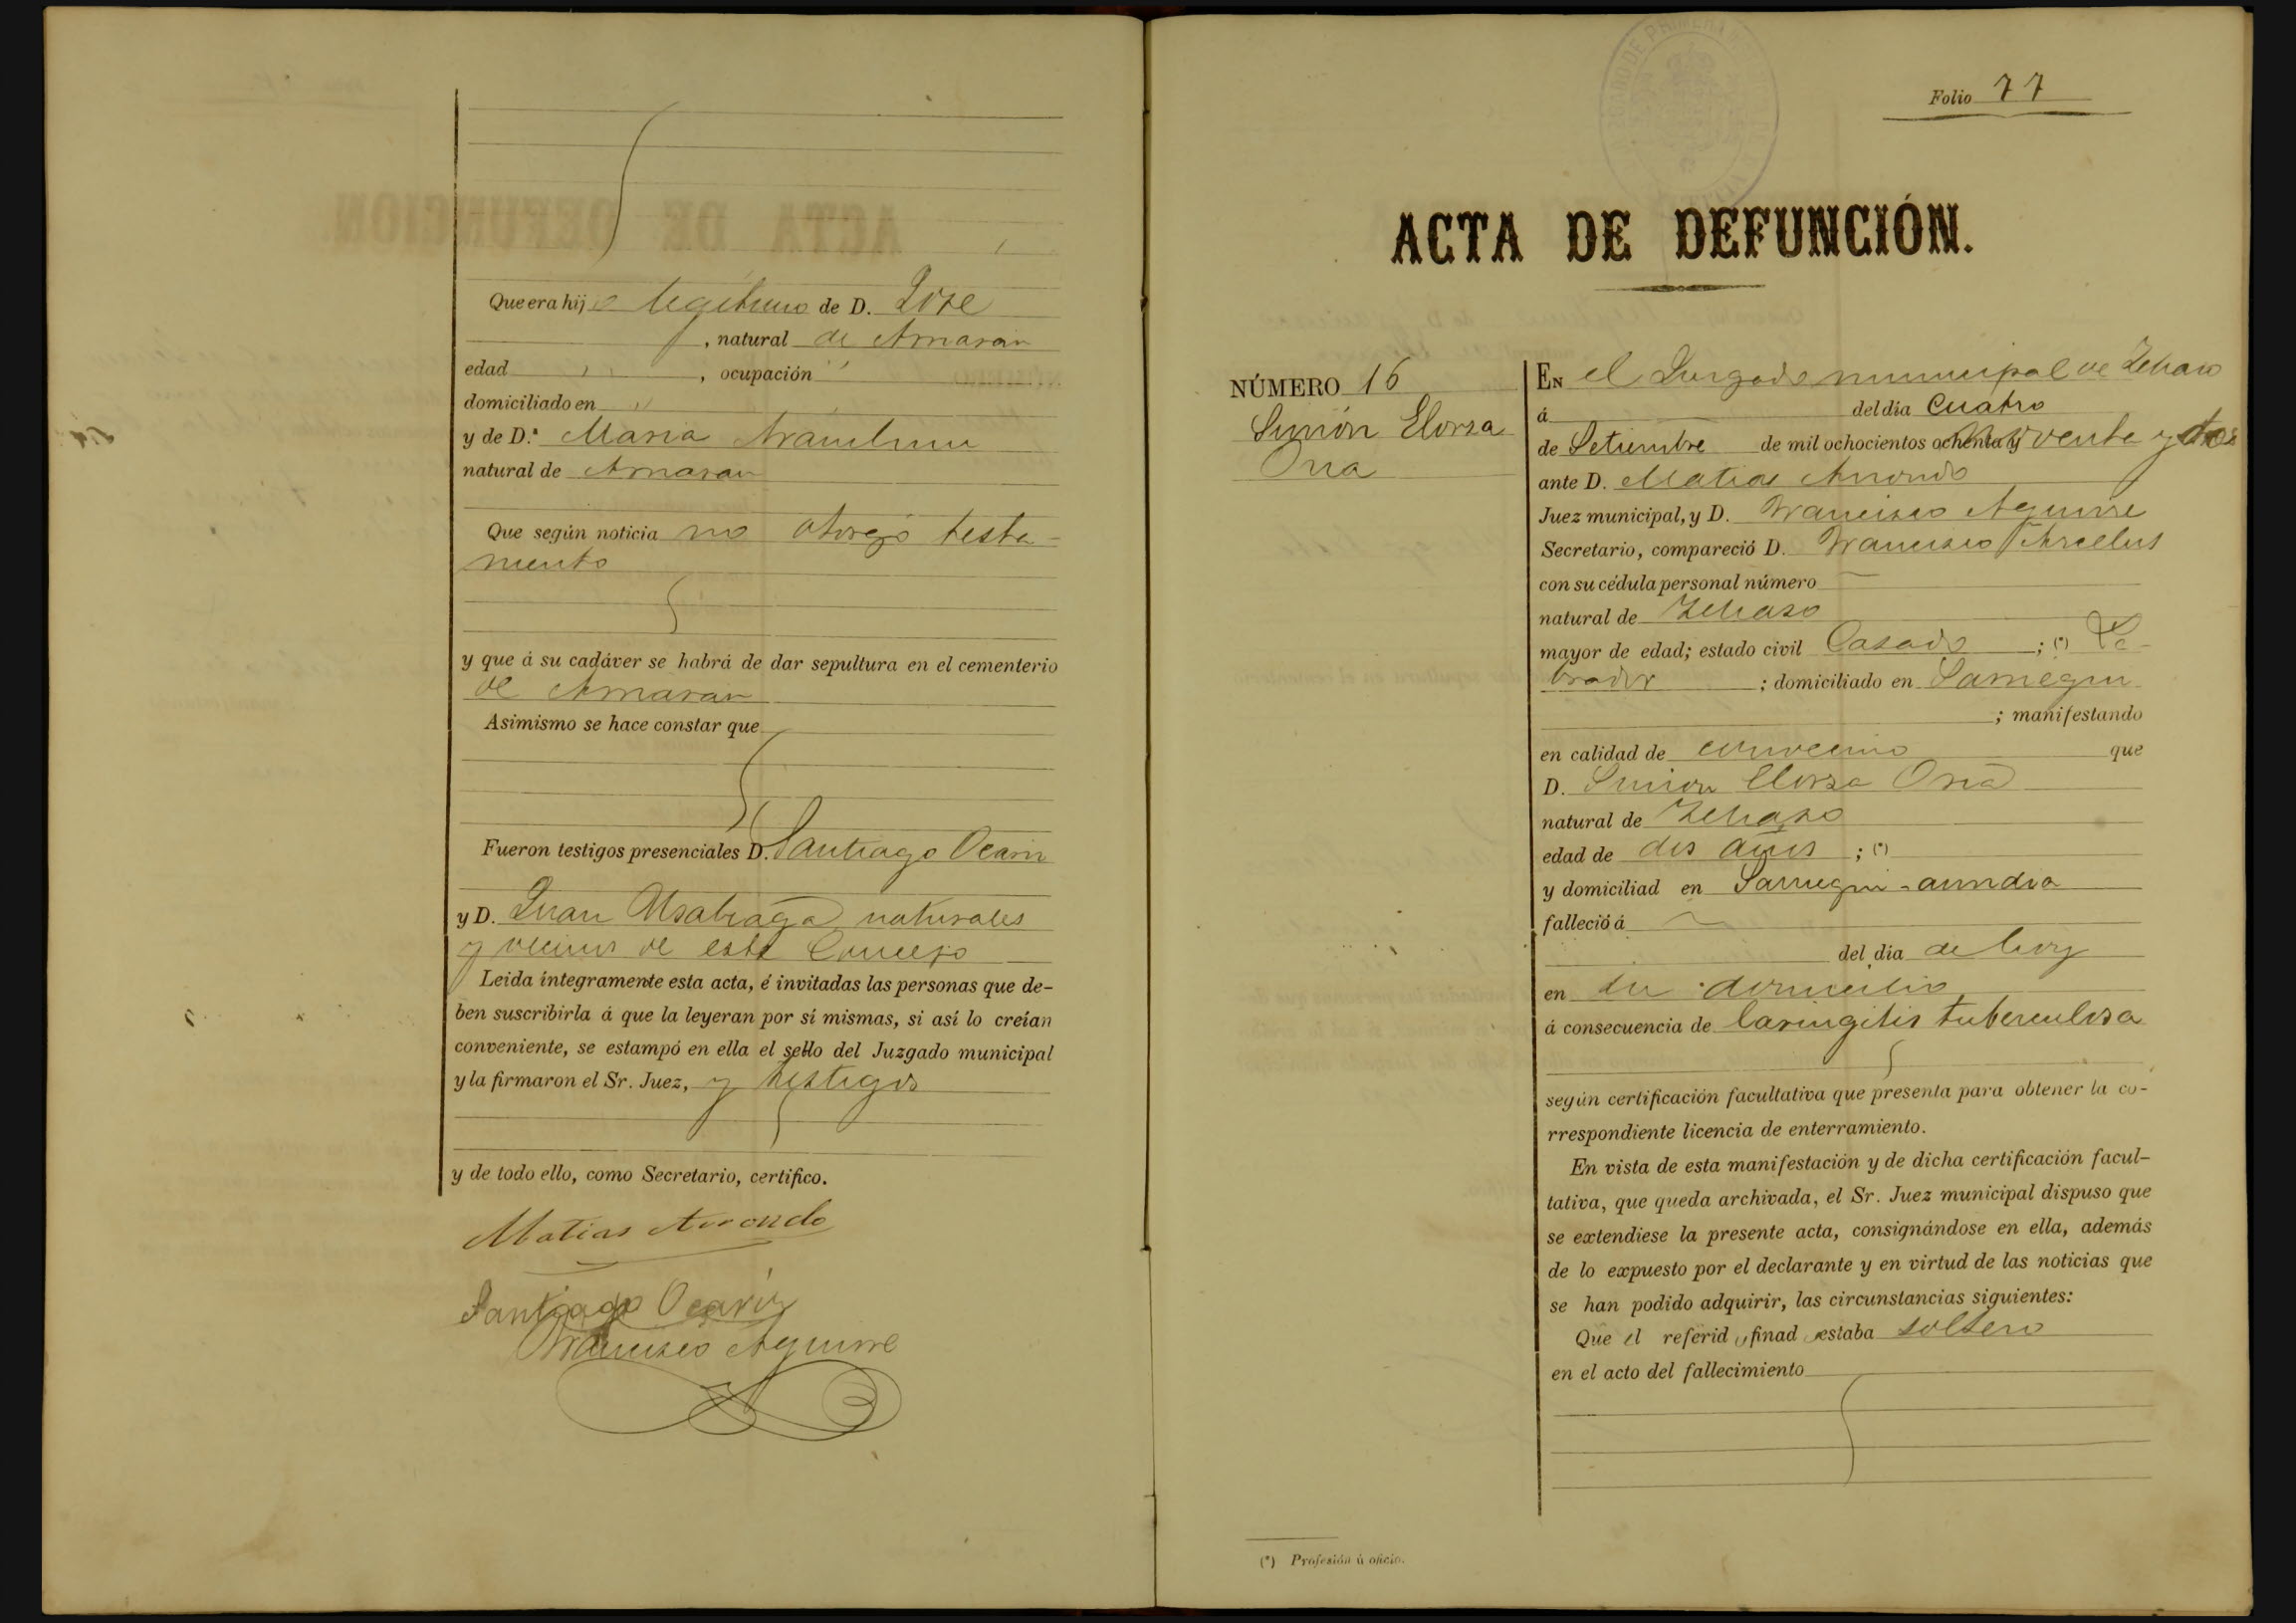 Que era hijo legitimo de D. Jose
, natural de Amasan
edad , ocupación
domiciliado en
y de D.ª Maria Aramburu
natural de Amasan
Que según noticia no otorgó testa-
mento
y que á su cadáver se habrá de dar sepultura en el cementerio
de Amasan
Asimismo se hace constar que
Fueron testigos presenciales D. Santiago Ocariz
y D. Juan Usabiaga naturales
y vecinos de este Concejo
Leida íntegramente esta acta, é invitadas las personas que de-
ben suscribirla á que la leyeran por sí mismas, si así lo creían
conveniente, se estampó en ella el sello del Juzgado municipal
y la firmaron el Sr. Juez, y testigos
y de todo ello, como Secretario, certifico.
Matias
Santiago Ocariz
Francisco Aguirre
Folio 77
ACTA DE DEFUNCIÓN.
NÚMERO 16
Simón Elorza
Oria
En el Juzgado municipal de
á del dia Cuatro
de Setiembre de mil ochocientos ochenta y noventa y dos
ante D. Matias
Juez municipal, y D. Francisco Aguirre
Secretario, compareció D. Francisco Arcelus
con su cédula personal número
natural de
mayor de edad; estado civil Casado ; (*) La-
brador ; domiciliado en
; manifestando
en calidad de convecino que
D. Simon Elorza Oria
natural de
edad de dos años ; (*)
y domiciliad en
falleció á
del dia de hoy
en su domicilio
á consecuencia de laringitis tuberculosa
según certificación facultativa que presenta para obtener la co-
rrespondiente licencia de enterramiento.
En vista de esta manifestación y de dicha certificación facul-
tativa, que queda archivada, el Sr. Juez municipal dispuso que
se extendiese la presente acta, consignándose en ella, además
de lo expuesto por el declarante y en virtud de las noticias que
se han podido adquirir, las circunstancias siguientes:
Que el referido finado estaba soltero
en el acto del fallecimiento
(*) Profesión ú oficio.